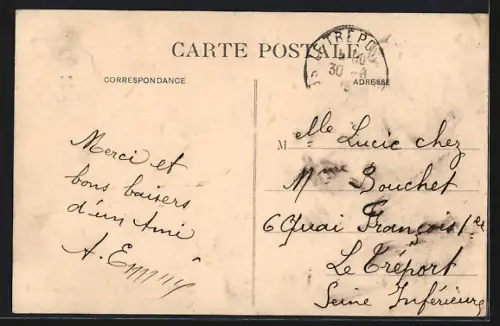 CARTE POSTALE
CORRESPONDANCE
ADRESSE
LE TRÉPORT
30 -8
Merci et
bons baisers
d'un Ami
M elle Lucie chez
Mme Bouchet
6 Quai François 1er
Le Tréport
Seine Inférieure